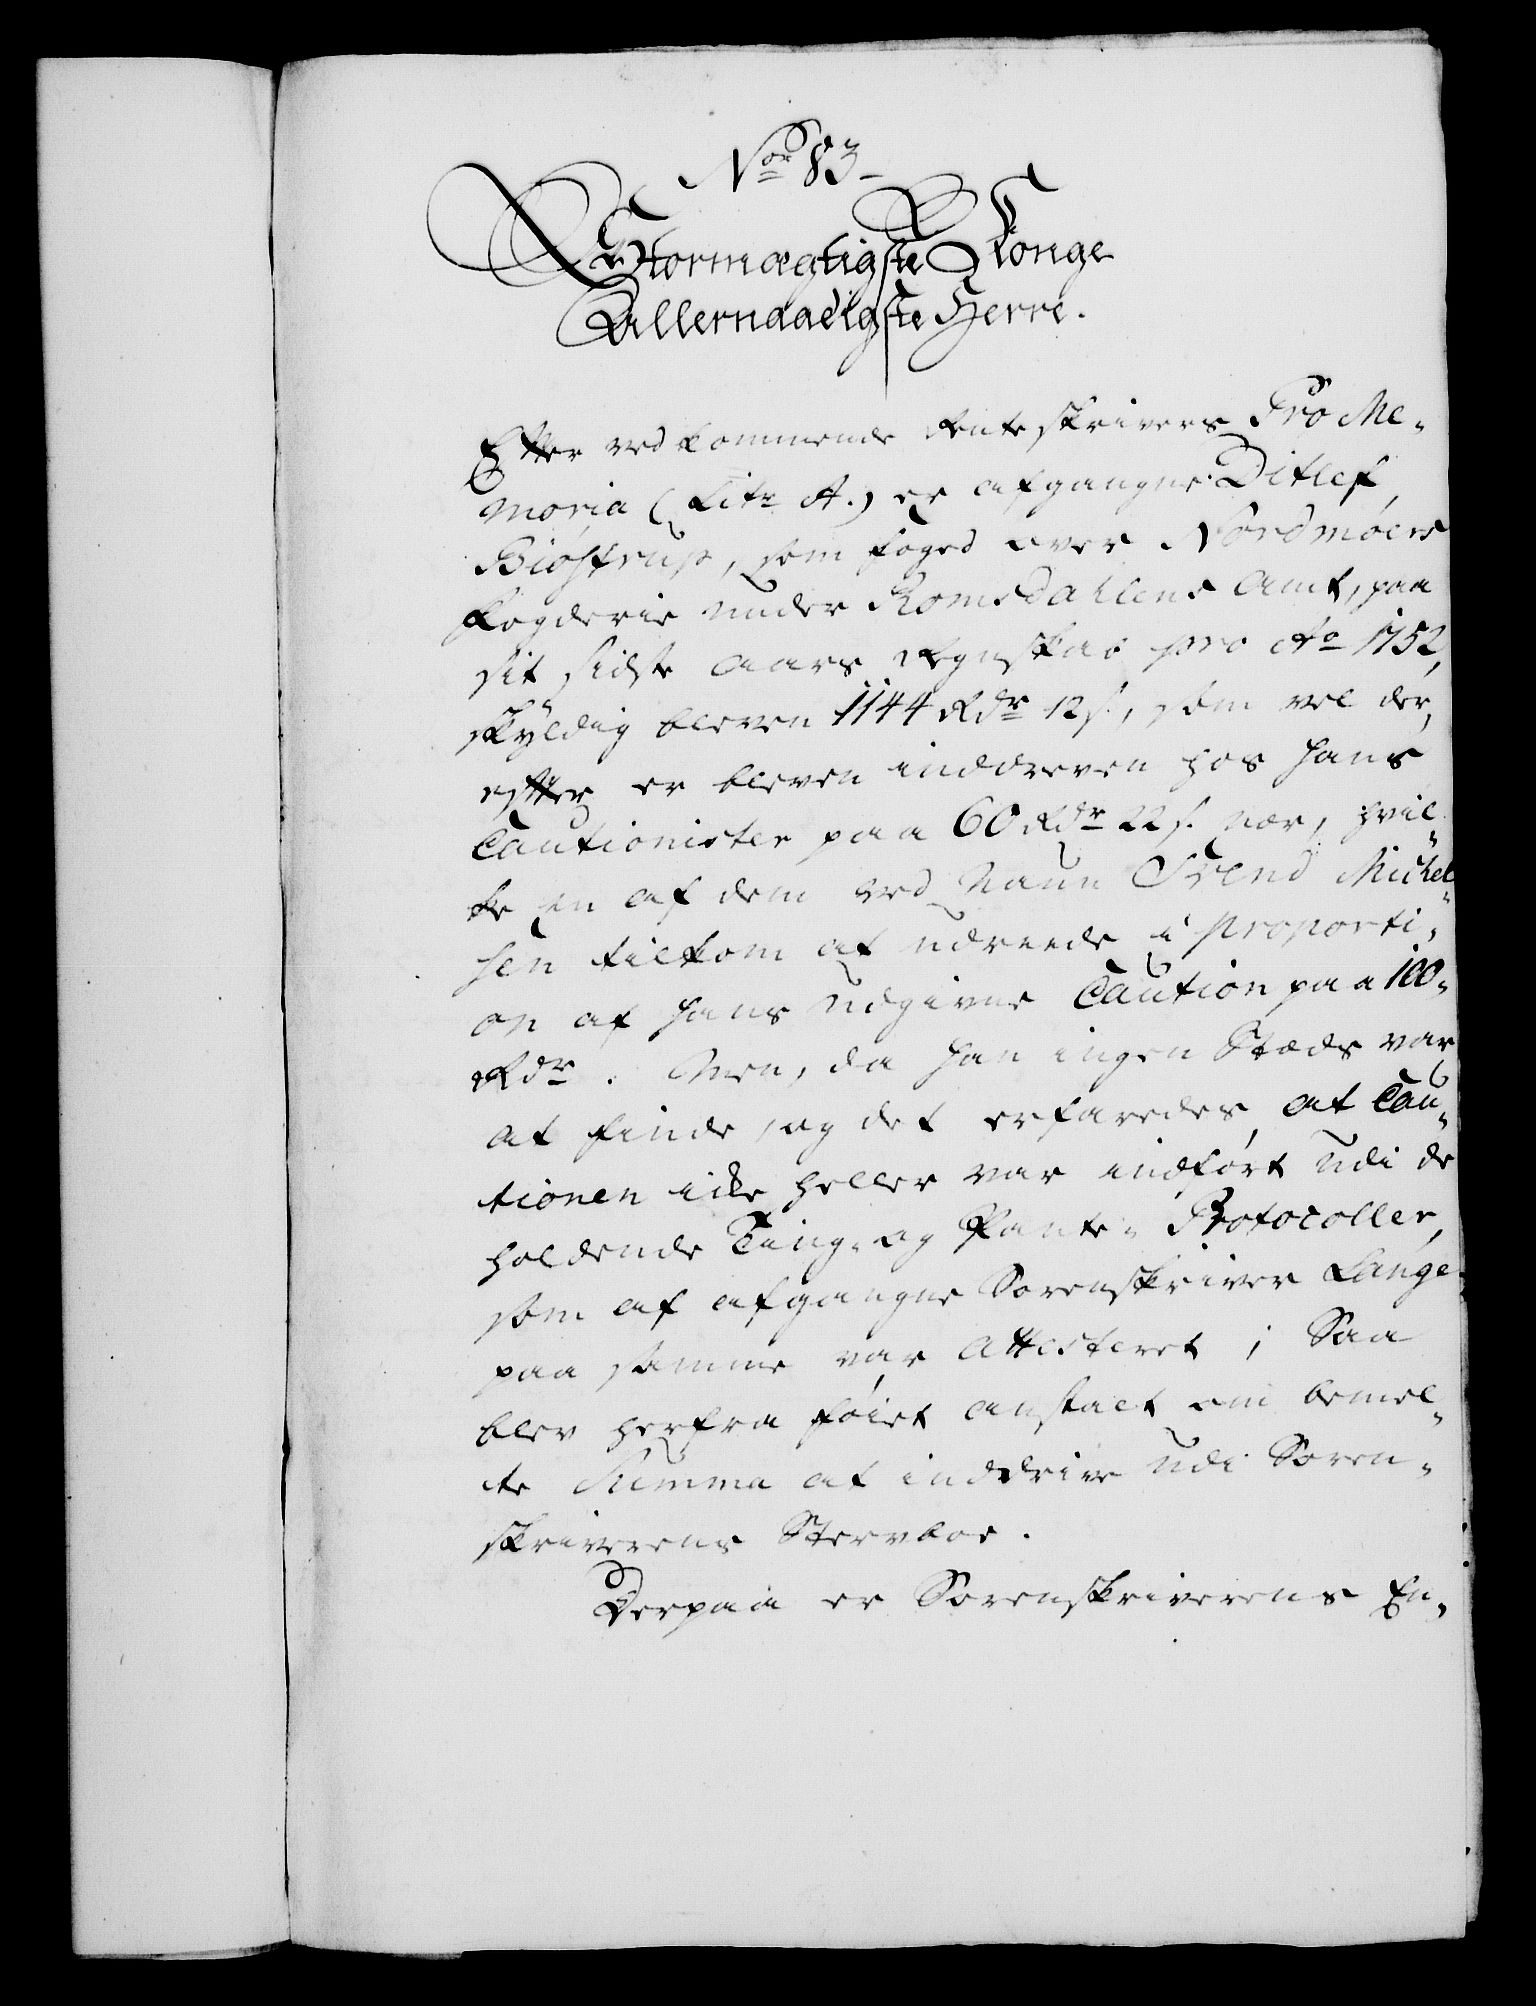 Nor 83-
Stormægtigste Konge
Allernaadigste Herre.
Efter vedkommende Renteskrivers Pro Me-
moria (Litr A.) er afgangne Ditlef
Biøstrup, som foged over Nordmøers
fogderie under Romsdahlens Amt, paa
sit sidste aars Regnskab pro Ao 1752,
skyldig bleven 1144 Rdr 12 s., som vel der,
efter er bleven inddreven hos hans
Cautionister paa 60 Rdr 22 s. nær, hvil-
ke en af dem ved Navn Svend Michel-
sen tilkom at udreede i proporti-
on af hans udgivne Caution paa 100-
Rdr. Men, da han ingen Stæds var
at finde, og det erfaredes, at Cau-
tionen ikke heller var indført udi de
holdende Ting- og Pante- Protocoller,
som af afgangne Sorenskriver Lange
paa samme var attesteret; Saa
blev herfra føiet anstalt om bemel-
te Summa at inddrive udi Soren-
skriverens Stervboe.
Derpaa er Sorenskriverens En-